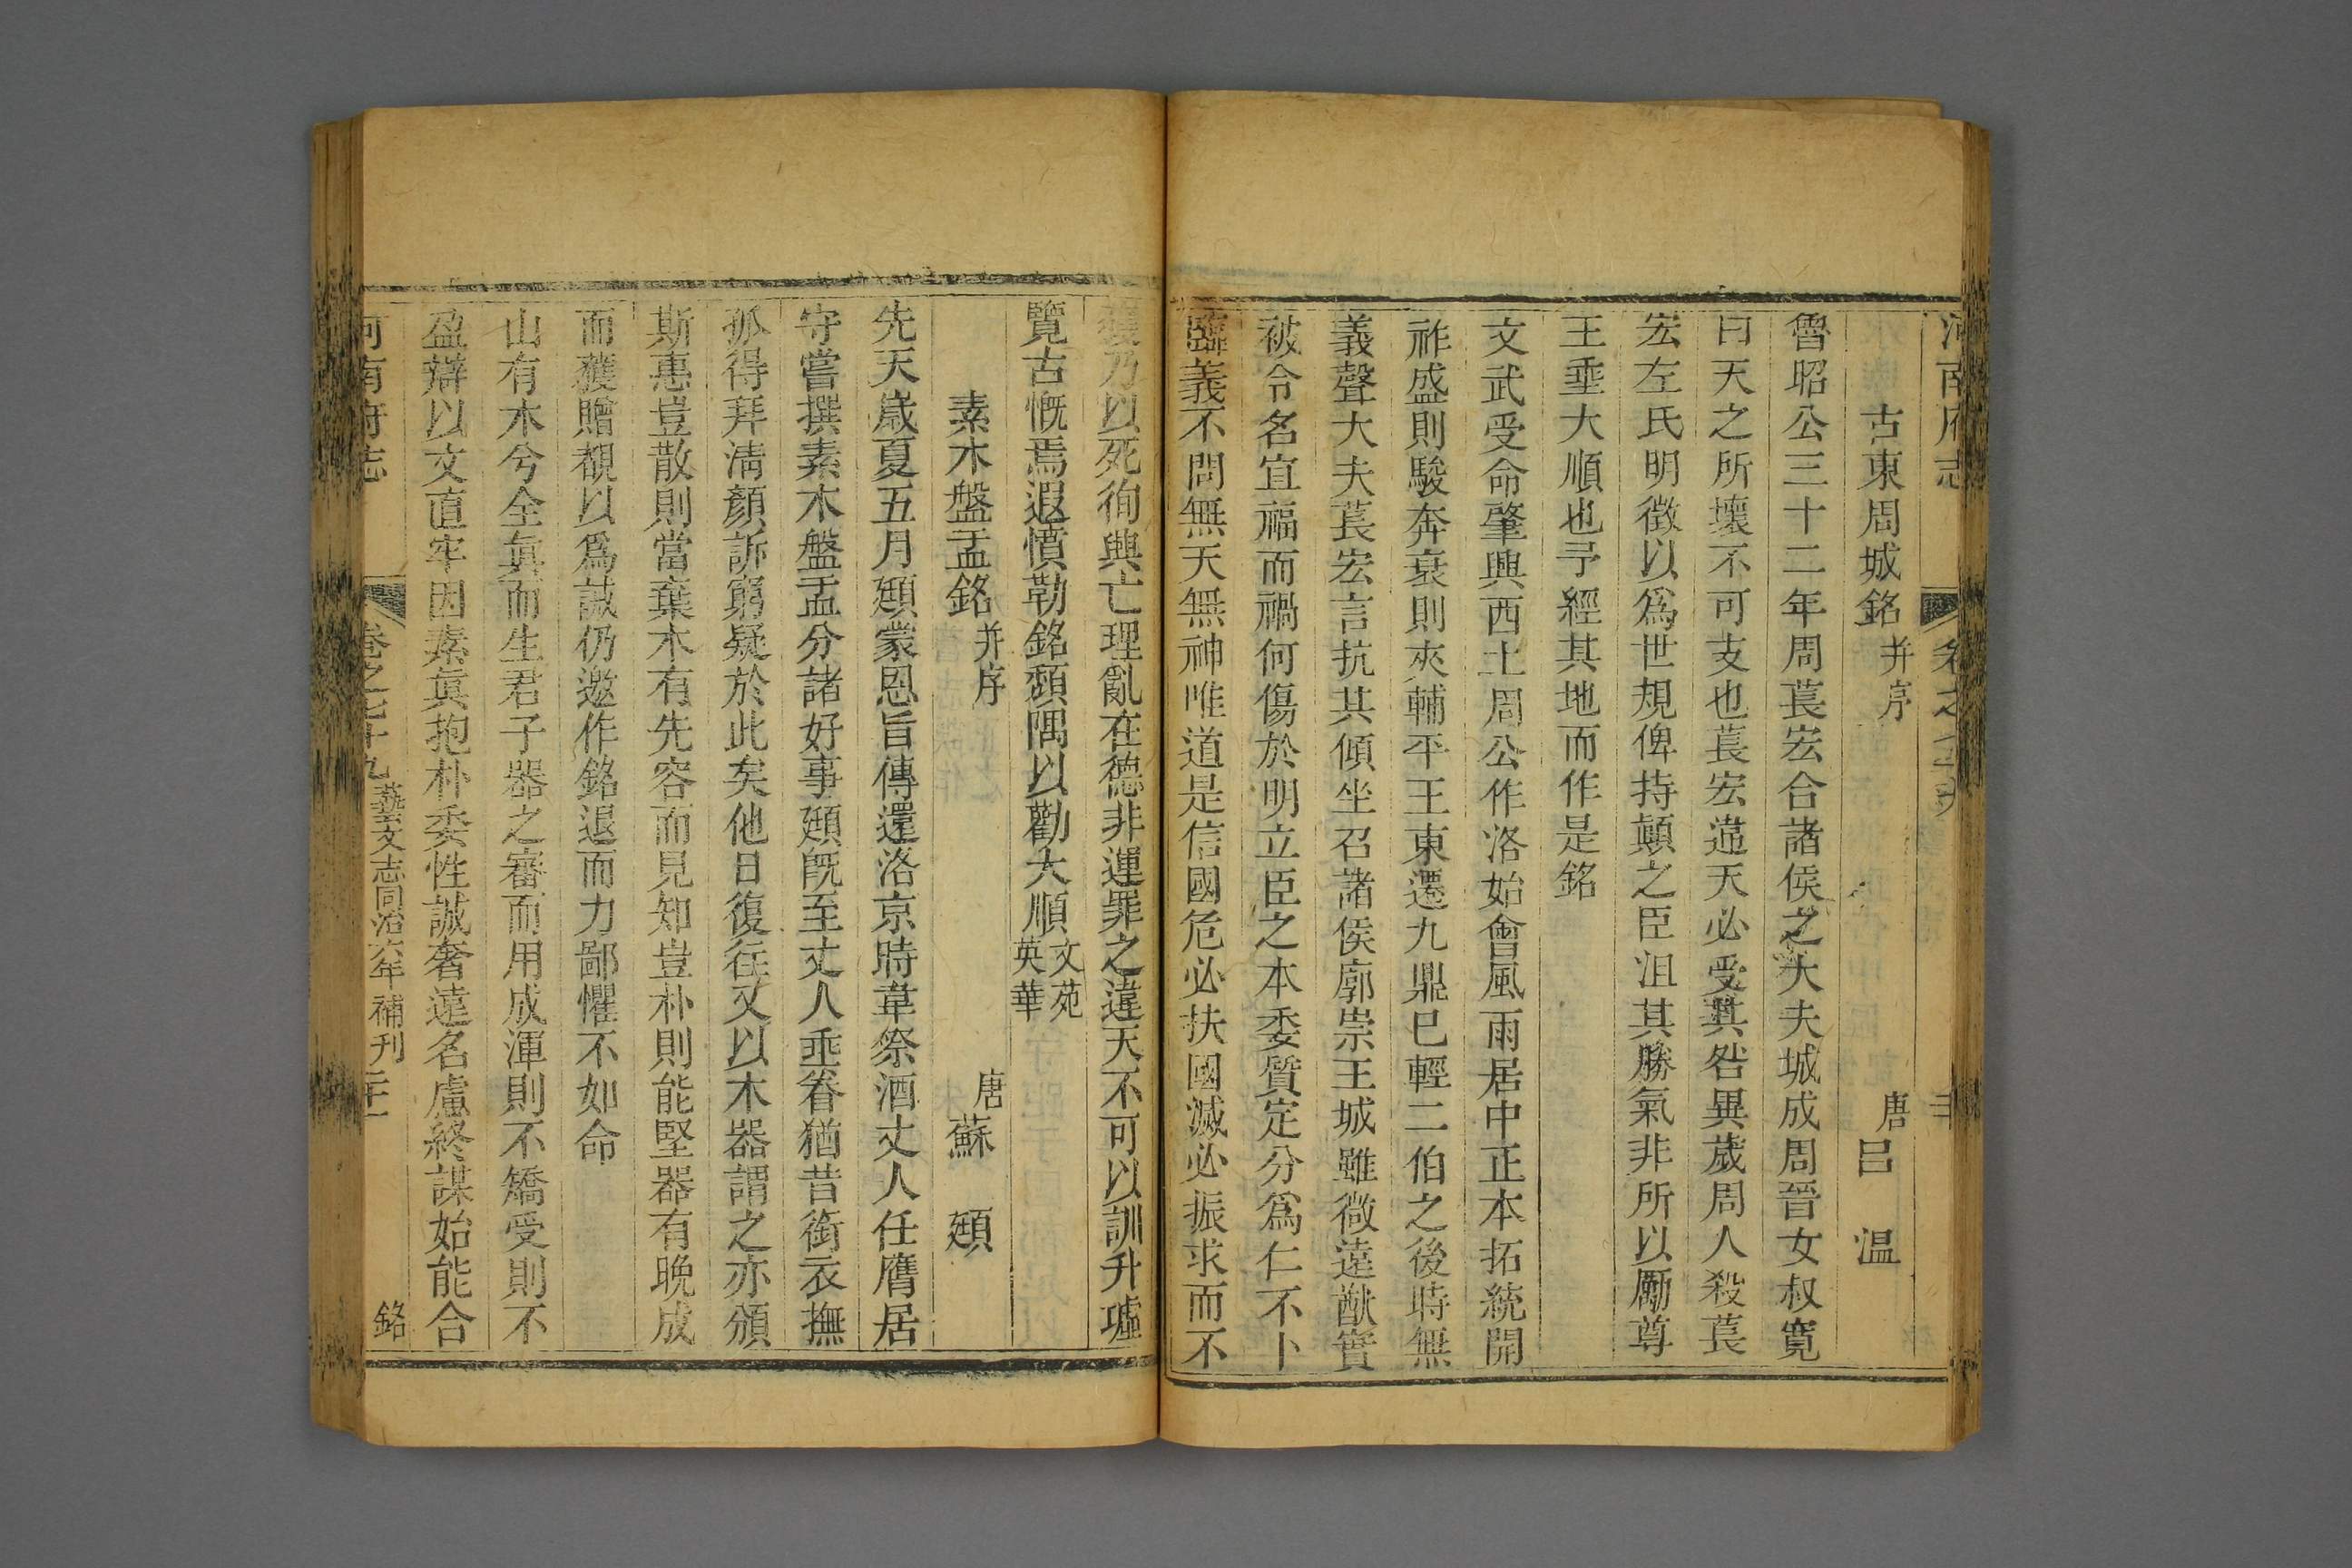 古東周城銘并序 唐 吕 温
魯昭公三十二年周萇宏合諸侯之大夫城成周晉女叔寛
曰天之所壞不可支也萇宏違天必受其咎異歲周人殺萇
宏左氏明徵以爲世規俾持顛之臣沮其勝氣非所以勵尊
王垂大順也予經其地而作是銘
文武受命肇興西土周公作洛始會風雨居中正本拓統開
祚盛則駿奔衰則夾輔平王東遷九鼎已輕二伯之後時無
義聲大夫萇宏言抗其傾坐召諸侯廓崇王城雖微遠猷實
被令名宜福而禍何傷於明立臣之本委質定分爲仁不卜
臨義不問無天無神唯道是信國危必扶國滅必振求而不
獲乃以死徇興亡理亂在德非運罪之違天不可以訓升墟
覽古慨焉遐憤勒銘頹隅以勸大順文苑英華
素木盤盂銘并序 唐 蘇 頲
先天歲夏五月頲蒙恩旨傳還洛京時韋祭酒丈人任膺居
守嘗撰素木盤盂分諸好事頲旣至丈人垂眷猶昔銜衣撫
孤得拜淸顏訴窮疑於此矣他日復往又以木器謂之亦頒
斯惠豈散則當棄木有先容而見知豈朴則能堅器有晚成
而獲贈覩以爲誡仍邀作銘退而力鄙懼不如命
山有木兮全眞而生君子器之審而用成渾則不矯受則不
盈辯以文直牢因素眞抱朴委性誠奢遠名慮終謀始能合
河南府志 卷之七十九 藝文志同治六年補刊 銘